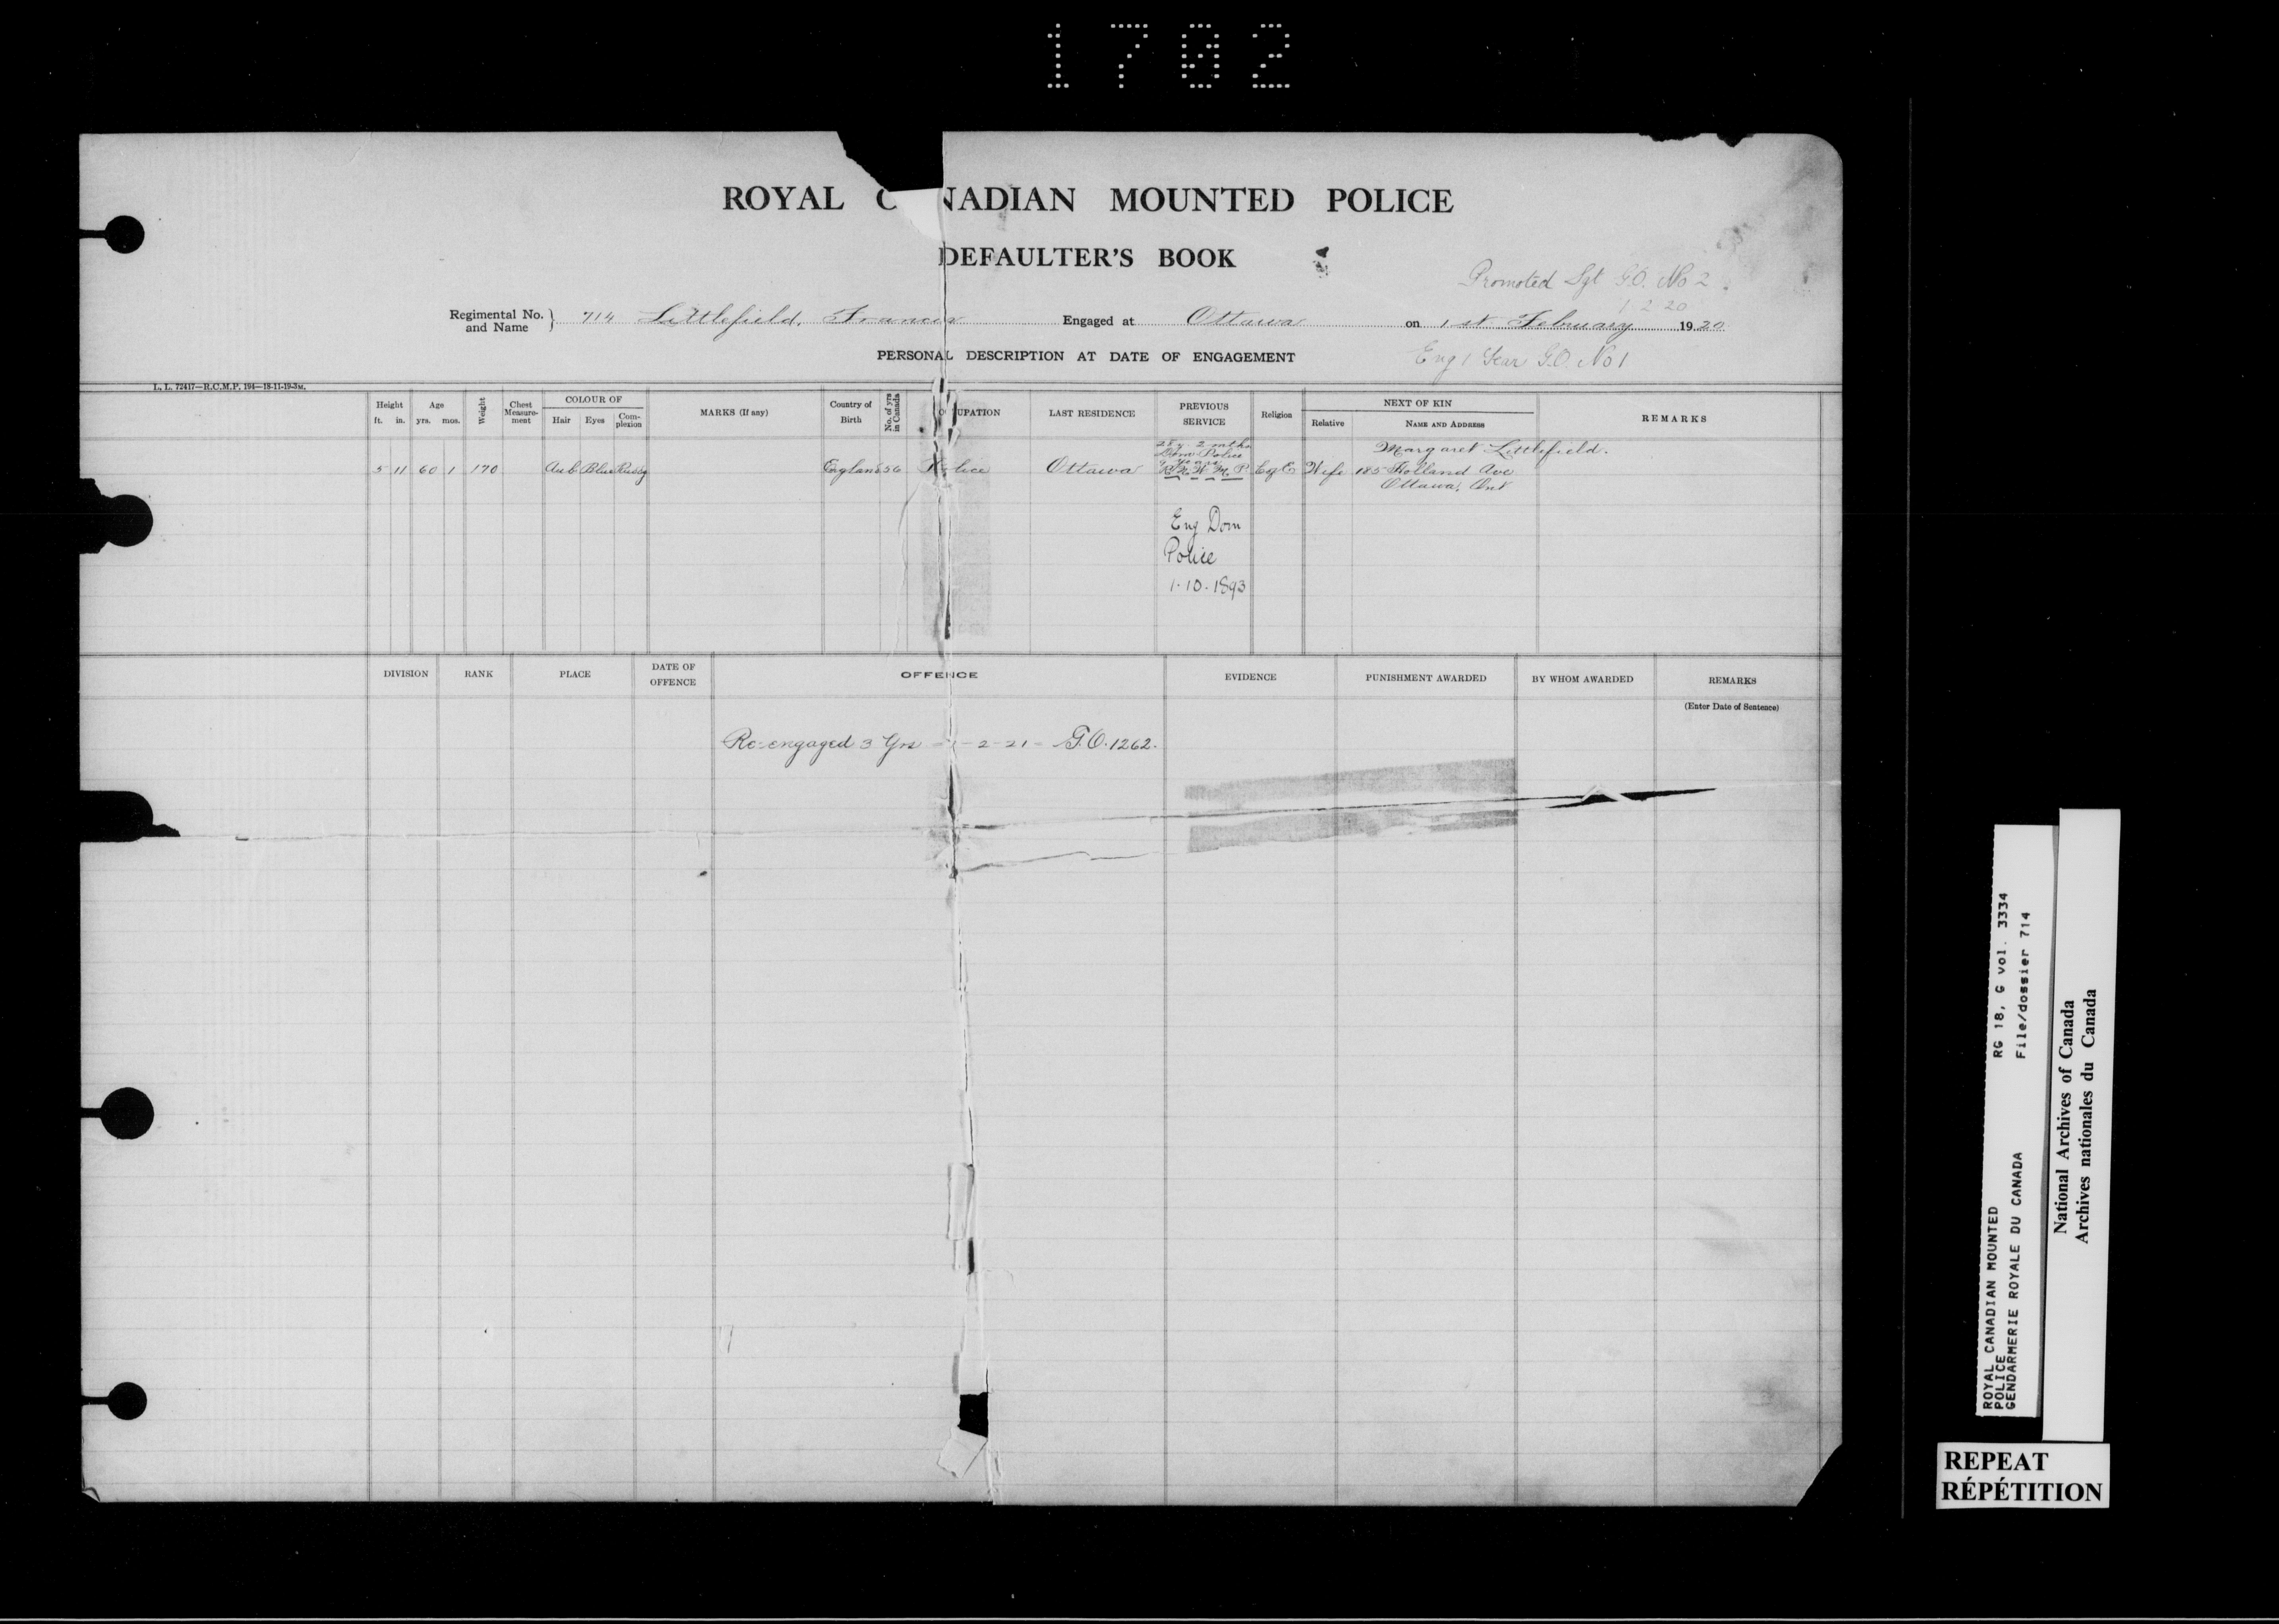 1702
ROYAL C NADIAN MOUNTED POLICE
DEFAULTER'S BOOK
Promoted Sgt G.O. No 2
1 2 20
Regimental No. and Name } 714 Littlefield, Francis Engaged at Ottawa on 1st February 1920
PERSONAL DESCRIPTION AT DATE OF ENGAGEMENT
Eng 1 Year G.O. No 1
L. L. 72417—R.C.M.P. 194—18-11-19-3M.
Height ft. in. Age yrs. mos. Weight Chest Measure-ment COLOUR OF Hair Eyes Com-plexion MARKS (If any) Country of Birth No. of yrs in Canada UPATION LAST RESIDENCE PREVIOUS SERVICE Religion NEXT OF KIN Relative NAME AND ADDRESS REMARKS
28 y 2 mths
Dom Police
Margaret Littlefield.
5 11 60 1 170 Aub Blue Ruddy England 56 Police Ottawa R.N.W.M.P. Wife 185 Holland Ave
Ottawa, Ont
Eng Dom
Police
1.10.1893
DIVISION RANK PLACE DATE OF OFFENCE OFFENCE EVIDENCE PUNISHMENT AWARDED BY WHOM AWARDED REMARKS
(Enter Date of Sentence)
Re-engaged 3 Yrs - 1-2-21- G.O. 1262.
ROYAL CANADIAN MOUNTED
POLICE
GENDARMERIE ROYALE DU CANADA
RG 18, G vol. 3334
File/dossier 714
National Archives of Canada
Archives nationales du Canada
REPEAT
RÉPÉTITION